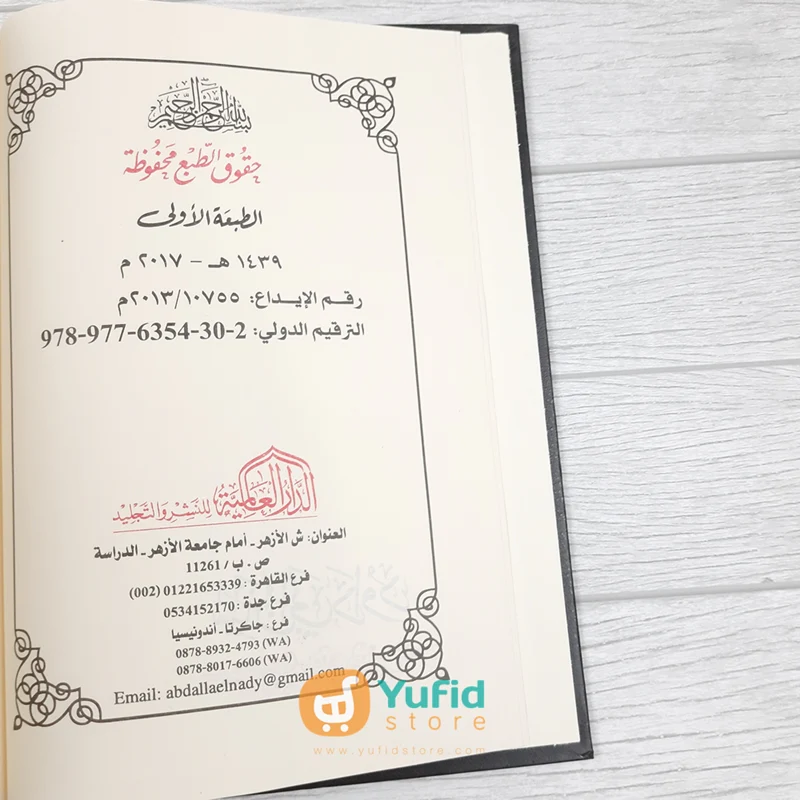 بسم الله الرحمن الرحيم
حقوق الطبع محفوظة
الطبعة الأولى
١٤٣٩ هـ - ٢٠١٧ م
رقم الإيداع: ٢٠١٣/١٠٧٥٥م
الترقيم الدولي: 978-977-6354-30-2
الدار العالمية للنشر والتجليد
العنوان: ش الأزهر - أمام جامعة الأزهر - الدراسة
ص . ب / 11261
فرع القاهرة : 01221653339 (002)
فرع جدة : 0534152170
فرع : جاكرتا - أندونيسيا
0878-8932-4793 (WA)
0878-8017-6606 (WA)
Email: abdallaelnady@gmail.com
Yufid
store
www.yufidstore.com